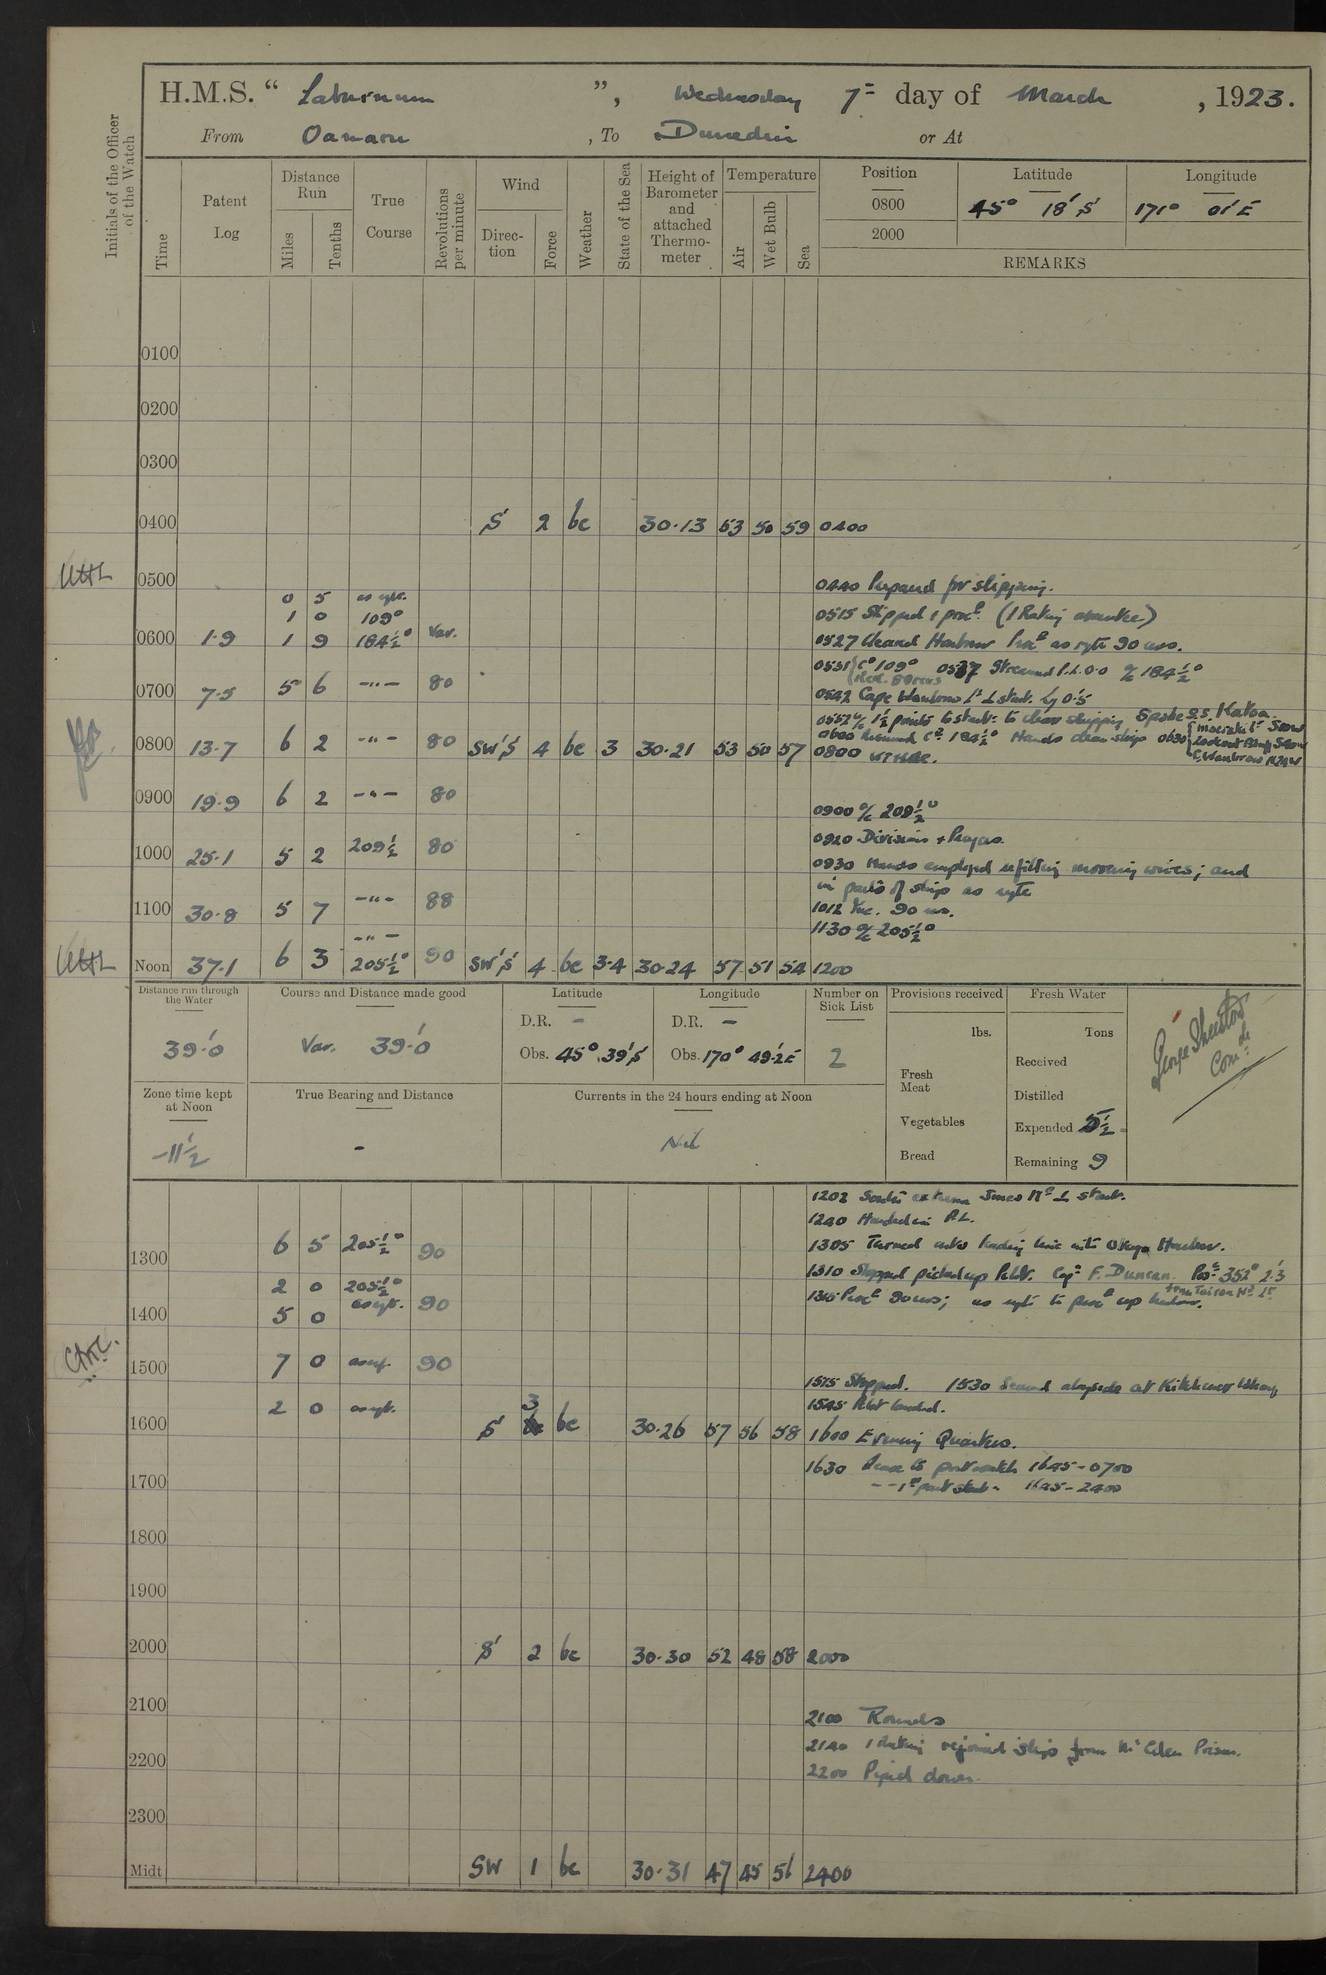 H.M.S. “ Laburnum ”, Wednesday 7th day of March, 1923.
From Oamaru, To Dunedin or At
Initials of the Officer of the Watch
Time
Patent Log
Distance Run
Miles
Tenths
True Course
Revolutions per minute
Wind
Direction
Force
Weather
State of the Sea
Height of Barometer and attached Thermometer
Temperature
Air
Wet Bulb
Sea
Position Latitude Longitude
0800 45° 18' S 171° 01' E
2000
REMARKS
0100
0200
0300
0400 S 2 bc 30.13 53 50 59 0400
0500
0440 Prepared for slipping.
0 5 as rqte.
1 0 109°
0515 Slipped & procd. (1 Rating absentee)
0600 1.9 1 9 184½° Var.
0527 Cleared Harbour Procd as rqte 90 revs.
0531 Co 109° 0537 Streamed P.L. 0.0 a/c 184½°
0700 7.5 5 6 -"- 80
0542 Cape Wanbrow Lt ⊥ starbd. 0.5
0552 a/c 1½ points to starbd. to clear shipping Spoke S.S. Katoa.
0600 Resumed Co. 184½° Hands clean ship 0630
0800 13.7 6 2 -"- 80 SW'S 4 bc 3 30.21 53 50 57 0800
0900 19.9 6 2 -"- 80
0900 a/c 209½°
0920 Divisions & Prayers.
1000 25.1 5 2 209½ 80
0930 Hands employed refitting mooring wires; and
in parts of ship as rqte
1100 30.8 5 7 -"- 88
1012 Inc. 90 revs.
1130 a/c 205½°
-"-
Noon 37.1 6 3 205½° 90 SW'S 4 bc 3.4 30.24 57 51 54 1200
Distance run through the Water
39.0
Course and Distance made good
Var. 39.0
Latitude
D.R. -
Obs. 45° 39' S
Longitude
D.R. -
Obs. 170° 49.2 E
Number on Sick List
2
Provisions received
lbs.
Fresh Meat
Vegetables
Bread
Fresh Water
Tons
Received
Distilled
Expended 5½
Remaining 9
Zone time kept at Noon
-11½
True Bearing and Distance
-
Currents in the 24 hours ending at Noon
Nil
1240 Handed in P.L.
1300 6 5 205½° 90
1305 Turned into leading line into Otago Harbour.
2 0 205½°
1310 Stopped picked up Pilot. Capt. F. Duncan. Posn 352° 2.3
from Taiaroa Hd Lt
1400 5 0 as rqte. 90
1315 Procd 90 revs; as rqte to procd up harbour.
1500 7 0 as rqte. 90
1515 Stopped. 1530 Secured alongside at Kitchener Wharf
2 0 as rqte.
1545 Pilot landed.
1600 S 3 bc 30.26 57 56 58 1600 Evening Quarters.
1630 Leave to port watch 1645-0700
- - 1st part starbd - 1645-2400
1700
1800
1900
2000 S 2 bc 30.30 52 48 58 2000
2100
2100 Rounds
2140 1 Rating rejoined ship from
2200
2200 Piped down.
2300
Midt SW 1 bc 30.31 47 45 56 2400